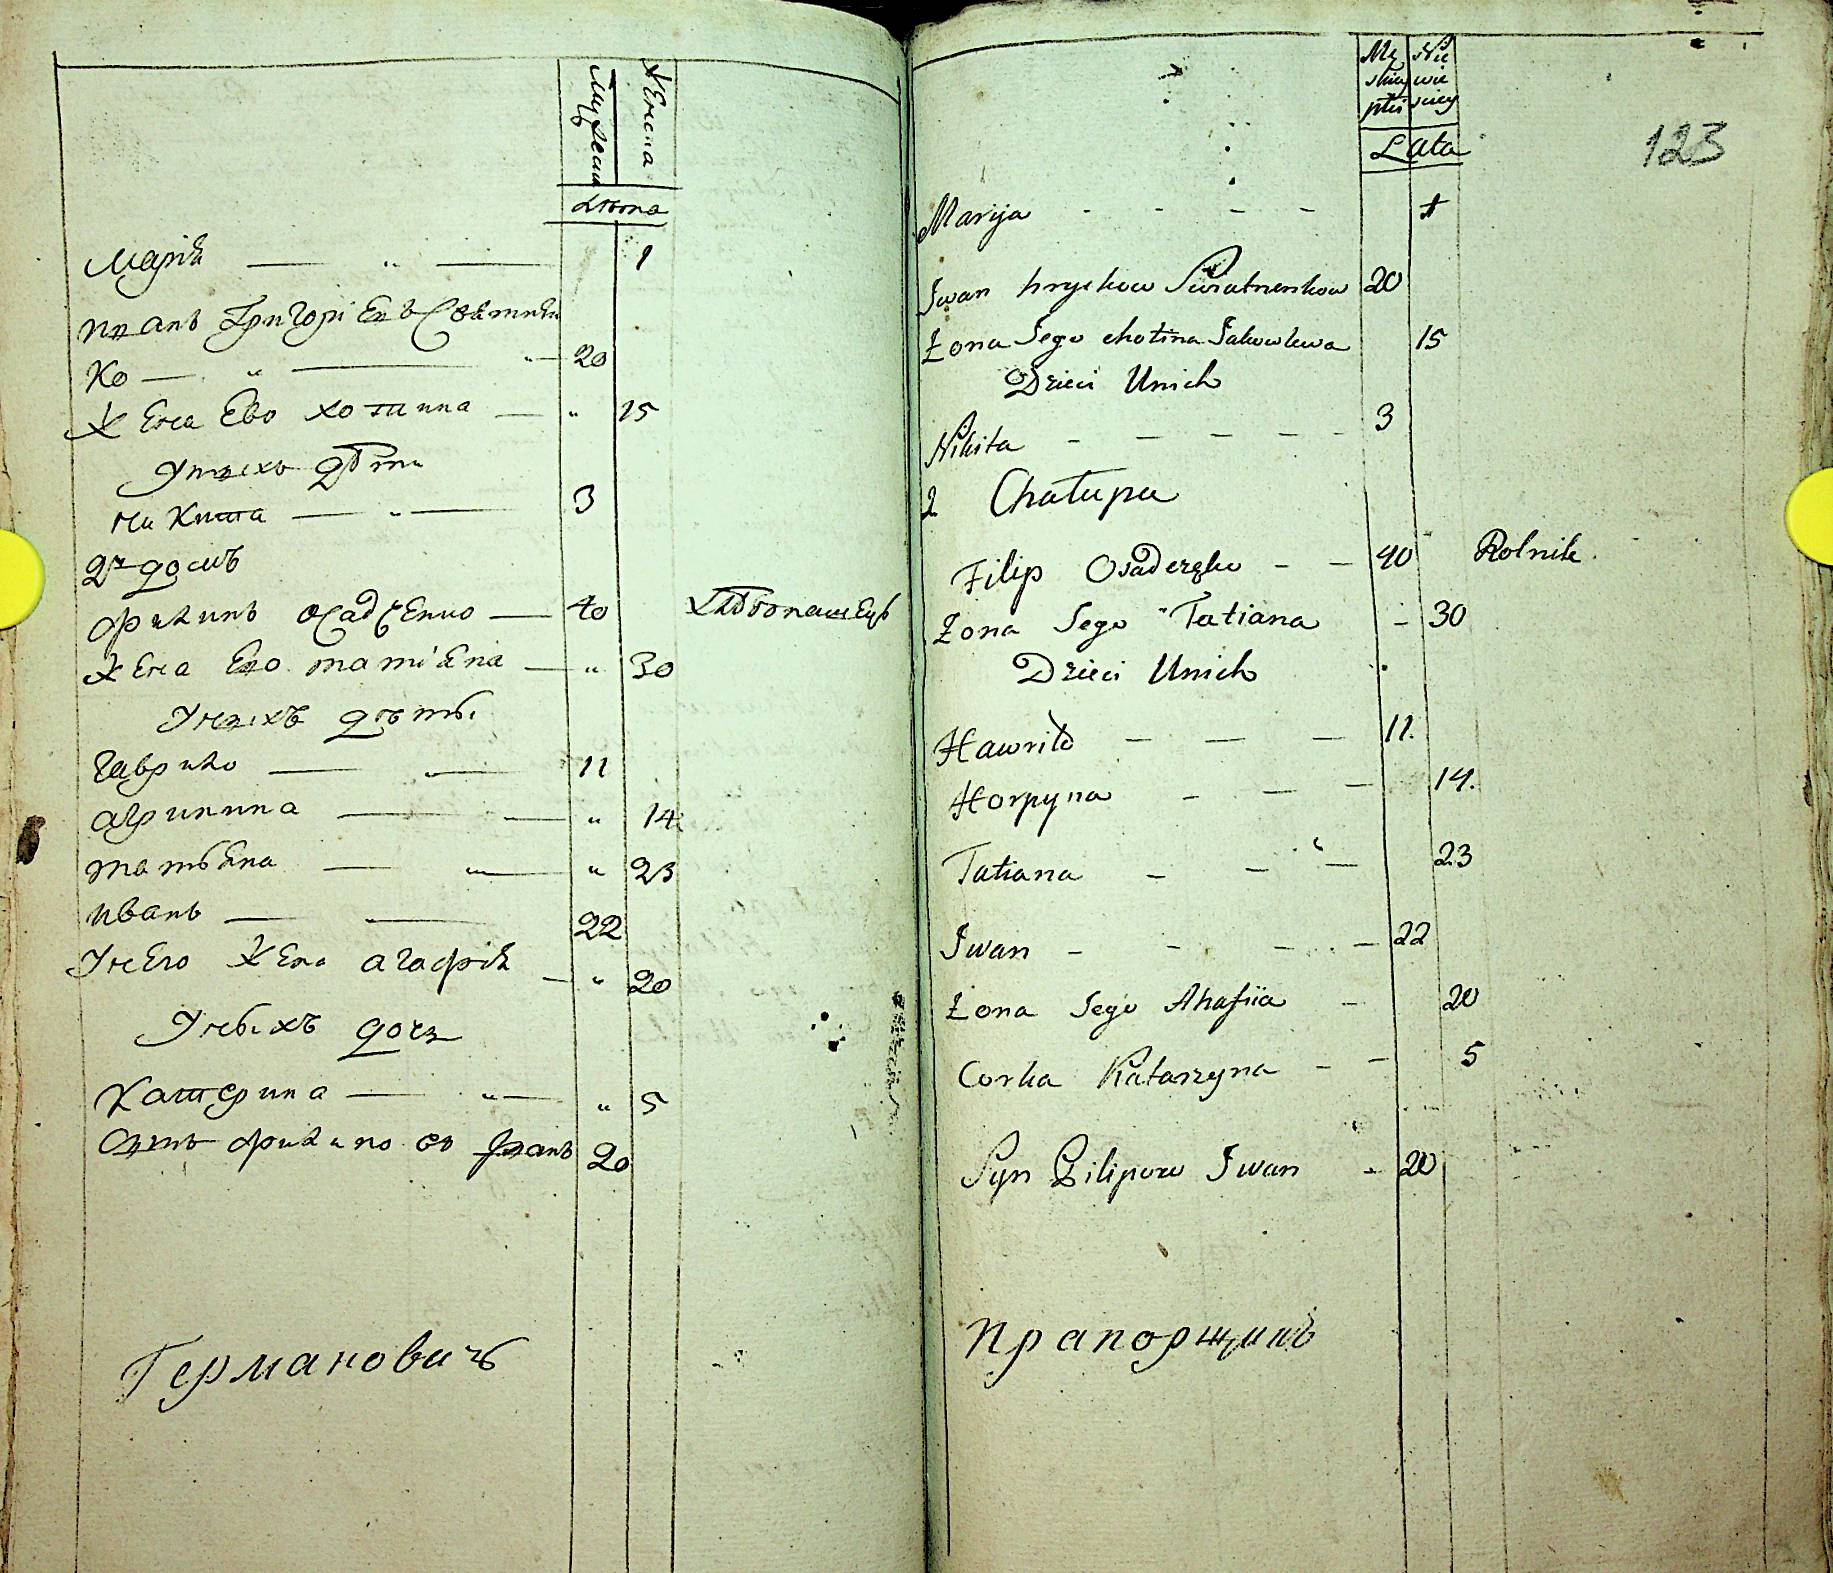 мужеска
женска
Лѣта
Мария — „ — 1
Иванъ Григориевъ
ко — „ — „ 20
Жена Ево хотина — „ 15
Унихъ дѣти
никита — „ — 3
2й домъ
Филипъ осадченко — 40 хлѣбопашецъ
Жена Ево татияна — „ 30
Унихъ дѣти
гаврило — „ — 11
агрипина — — „ 14
татияна — „ — „ 23
иванъ — — 22
Унего Жена агафия — „ 20
Унихъ дочь
Катерина — „ — „ 5
Сынъ филипов иванъ 20
Германовичъ
123
Lata
Marija - - - - 1
Iwan hryckow 20
Żona Jego chotina Jakowlewa 15
Dzieci Unich
Nikita - - - - - 3
2 Chałupa
Filip Osadczenko - - 40 Rolnik.
Żona Jego Tatiana - 30
Dzieci Unich
Hawriło - - - 11.
Horpyna - - - 14.
Tatiana - - - 23
Iwan - - - - 22
Żona Jego Ahafiia - 20
Corka Katarzyna - - 5
Syn Filipow Iwan - 20
прапорщикъ